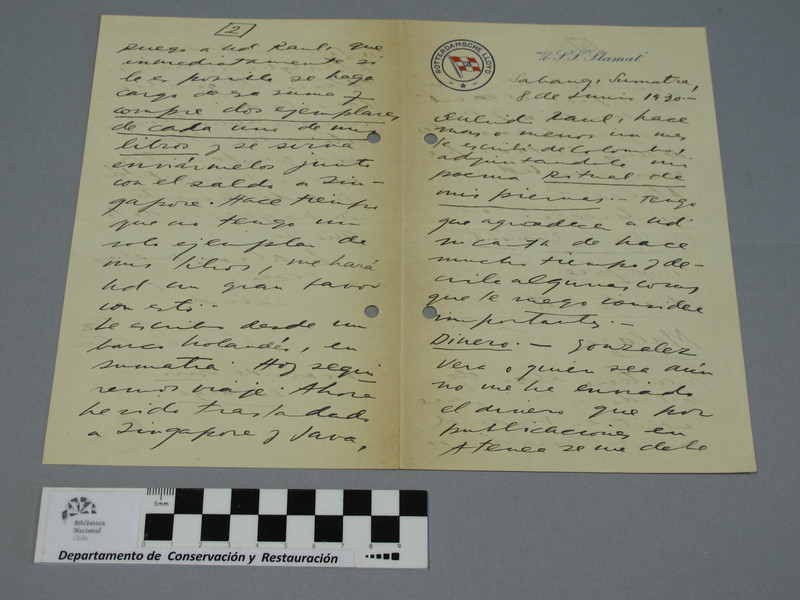 ROTTERDAMSCHE LLOYD
S.S. "Slamat"
Sabang, Sumatra,
8 de Junio 1930-
Raúl, hace
mas o menos un mes
le escribí de Colombo,
adjuntandole mi
poema Ritual de
mis piernas.- Tengo
que agradecer a Ud
su carta de hace
mucho tiempo y de-
cirle algunas cosas
que le ruego considere
importantes.-
Dinero.- Gonzalez
Vera o quien sea aún
no me ha enviado
el dinero que por
publicaciones en
Atenea se me debe
2
Ruego a Ud Raul, que
inmediatamente si
le es posible se haga
cargo de esa suma y
compre dos ejemplares
de cada uno de mis
libros y se sirva
enviármelos junto
con el saldo a Sin-
gapore. Hace tiempo
que no tengo un
solo ejemplar de
mis libros, me hará
Ud un gran favor
con esto..
Le escribo desde un
barco holandés, en
Sumatra. Hoy segui-
remos viaje. Ahora
he sido trasladado
a Singapore y Java,
Biblioteca
Nacional
Chile
5mm
0 1 2 3 4 5 6 7 8 9
Departamento de Conservación y Restauración